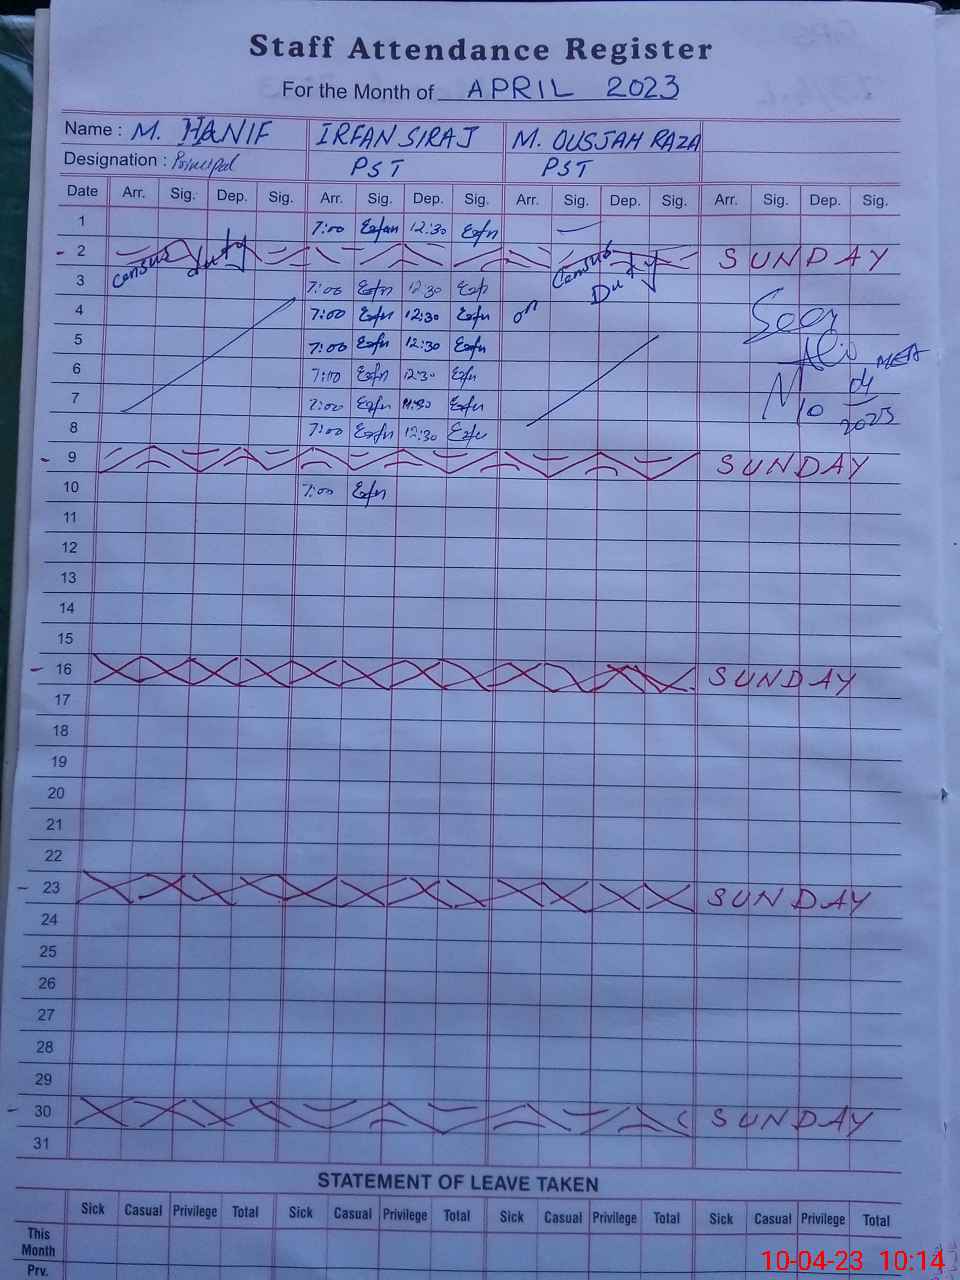 Staff Attendance Register
For the Month of APRIL 2023
Name : M. HANIF IRFAN SIRAJ M. OUSJAH RAZA
Designation : Principal PST PST
Date Arr. Sig. Dep. Sig. Arr. Sig. Dep. Sig. Arr. Sig. Dep. Sig. Arr. Sig. Dep. Sig.
1 7:00 12:30
2 Census duty Census Duty SUNDAY
3 7:00 12:30
4 7:00 12:30 on Seen
5 7:00 12:30
6 7:00 12:30
7 7:00 11:30 10 04 2023
8 7:00 12:30
9 SUNDAY
10 7:00
11
12
13
14
15
16 SUNDAY
17
18
19
20
21
22
23 SUNDAY
24
25
26
27
28
29
30 SUNDAY
31
STATEMENT OF LEAVE TAKEN
Sick Casual Privilege Total Sick Casual Privilege Total Sick Casual Privilege Total Sick Casual Privilege Total
This Month
Prv.
10-04-23 10:14